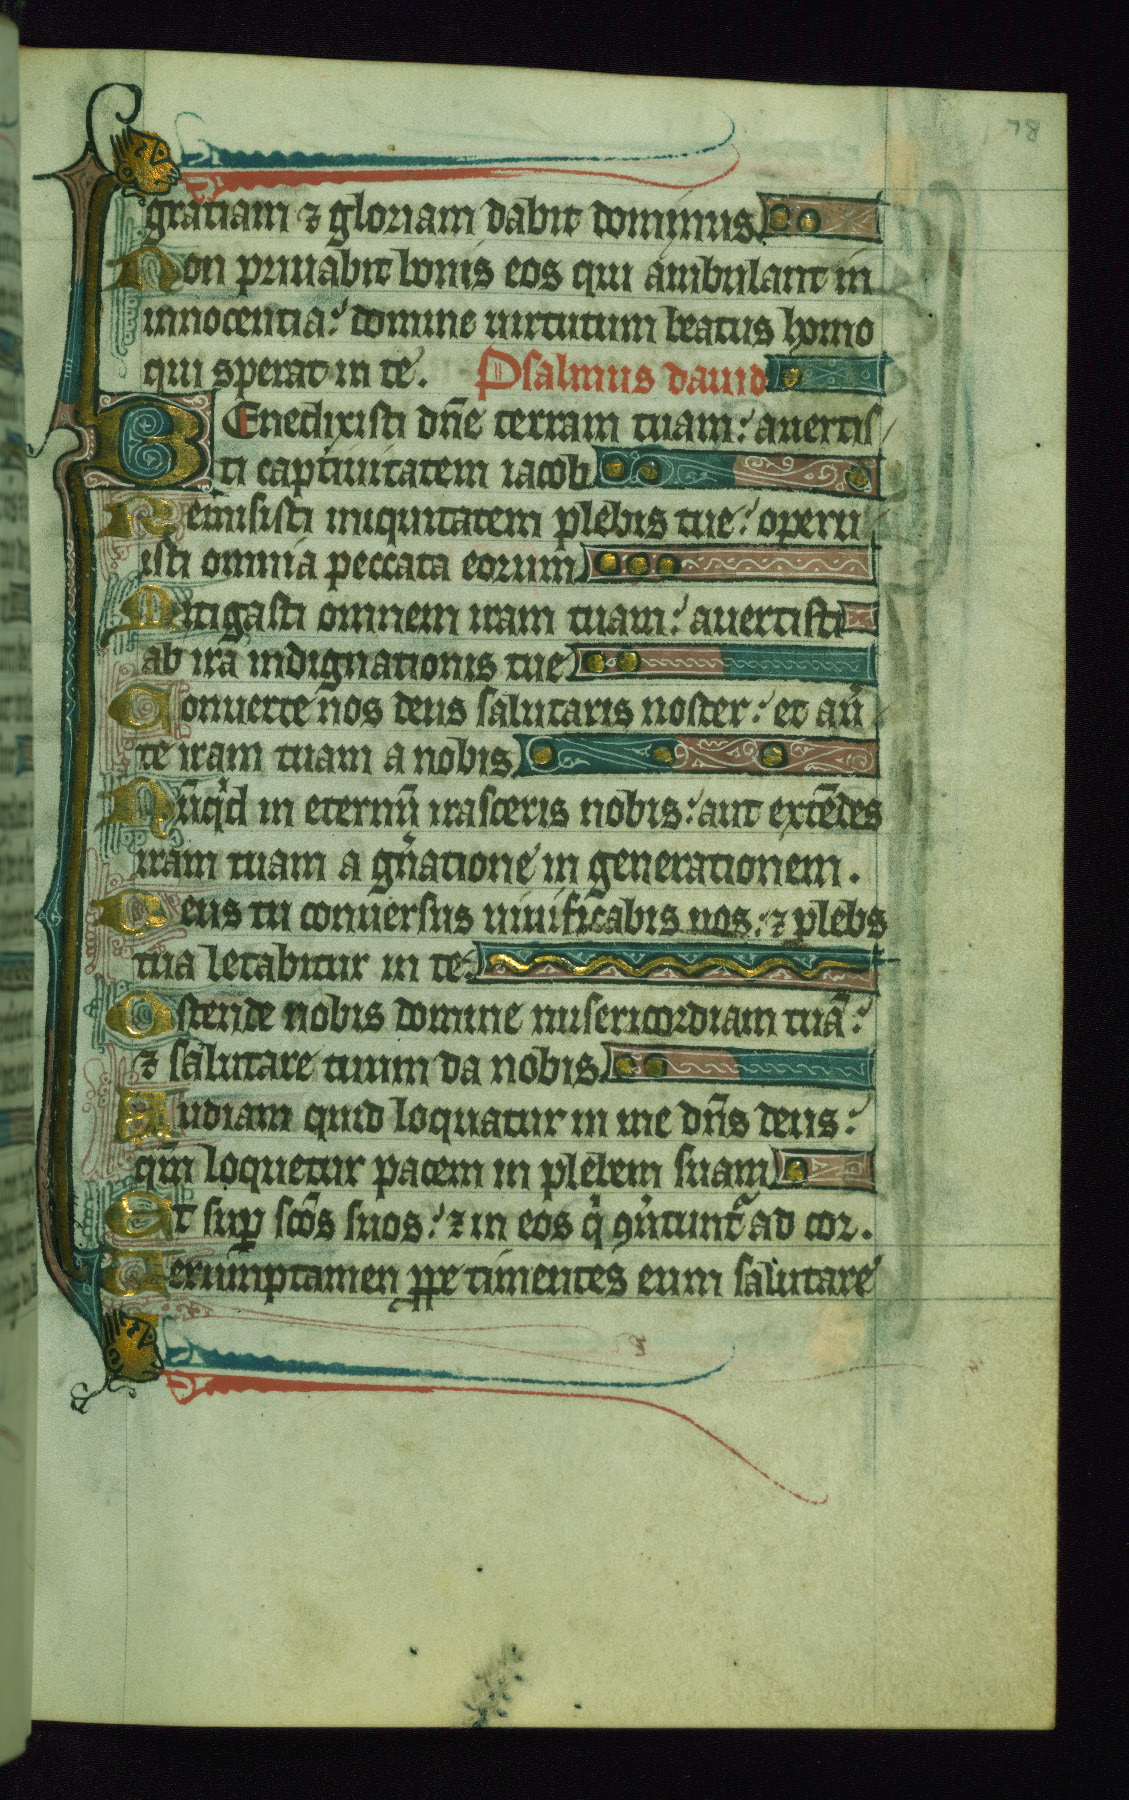 78
gratiam ⁊ gloriam dabit dominus
Non priuabit bonis eos qui ambulant in
innocentia: domine uirtutum beatus homo
qui sperat in te. Psalmus dauid
BEnedixisti dn̄e terram tuam: auertis
ti captiuitatem iacob
Remisisti iniquitatem plebis tue: operu
isti omnia peccata eorum
Mitigasti omnem iram tuam: auertisti
ab ira indignationis tue
Conuerte nos deus salutaris noster: et au̾
te iram tuam a nobis
Nūqͥd in eternū irasceris nobis: aut extēdes
iram tuam a gn̄atione in generationem.
Deus tu conuersus uiuificabis nos: ⁊ plebs
tua letabitur in te
Ostende nobis domine misericordiam tuā:
⁊ salutare tuum da nobis
Audiam quid loquatur in me dn̄s deus:
qm̄ loquetur pacem in plebem suam
Et suꝑ sc̄os suos: ⁊ in eos qͥ ꝯu̾tunt᷑ ad cor.
Uerumptamen ꝓpe timentes eum salutare